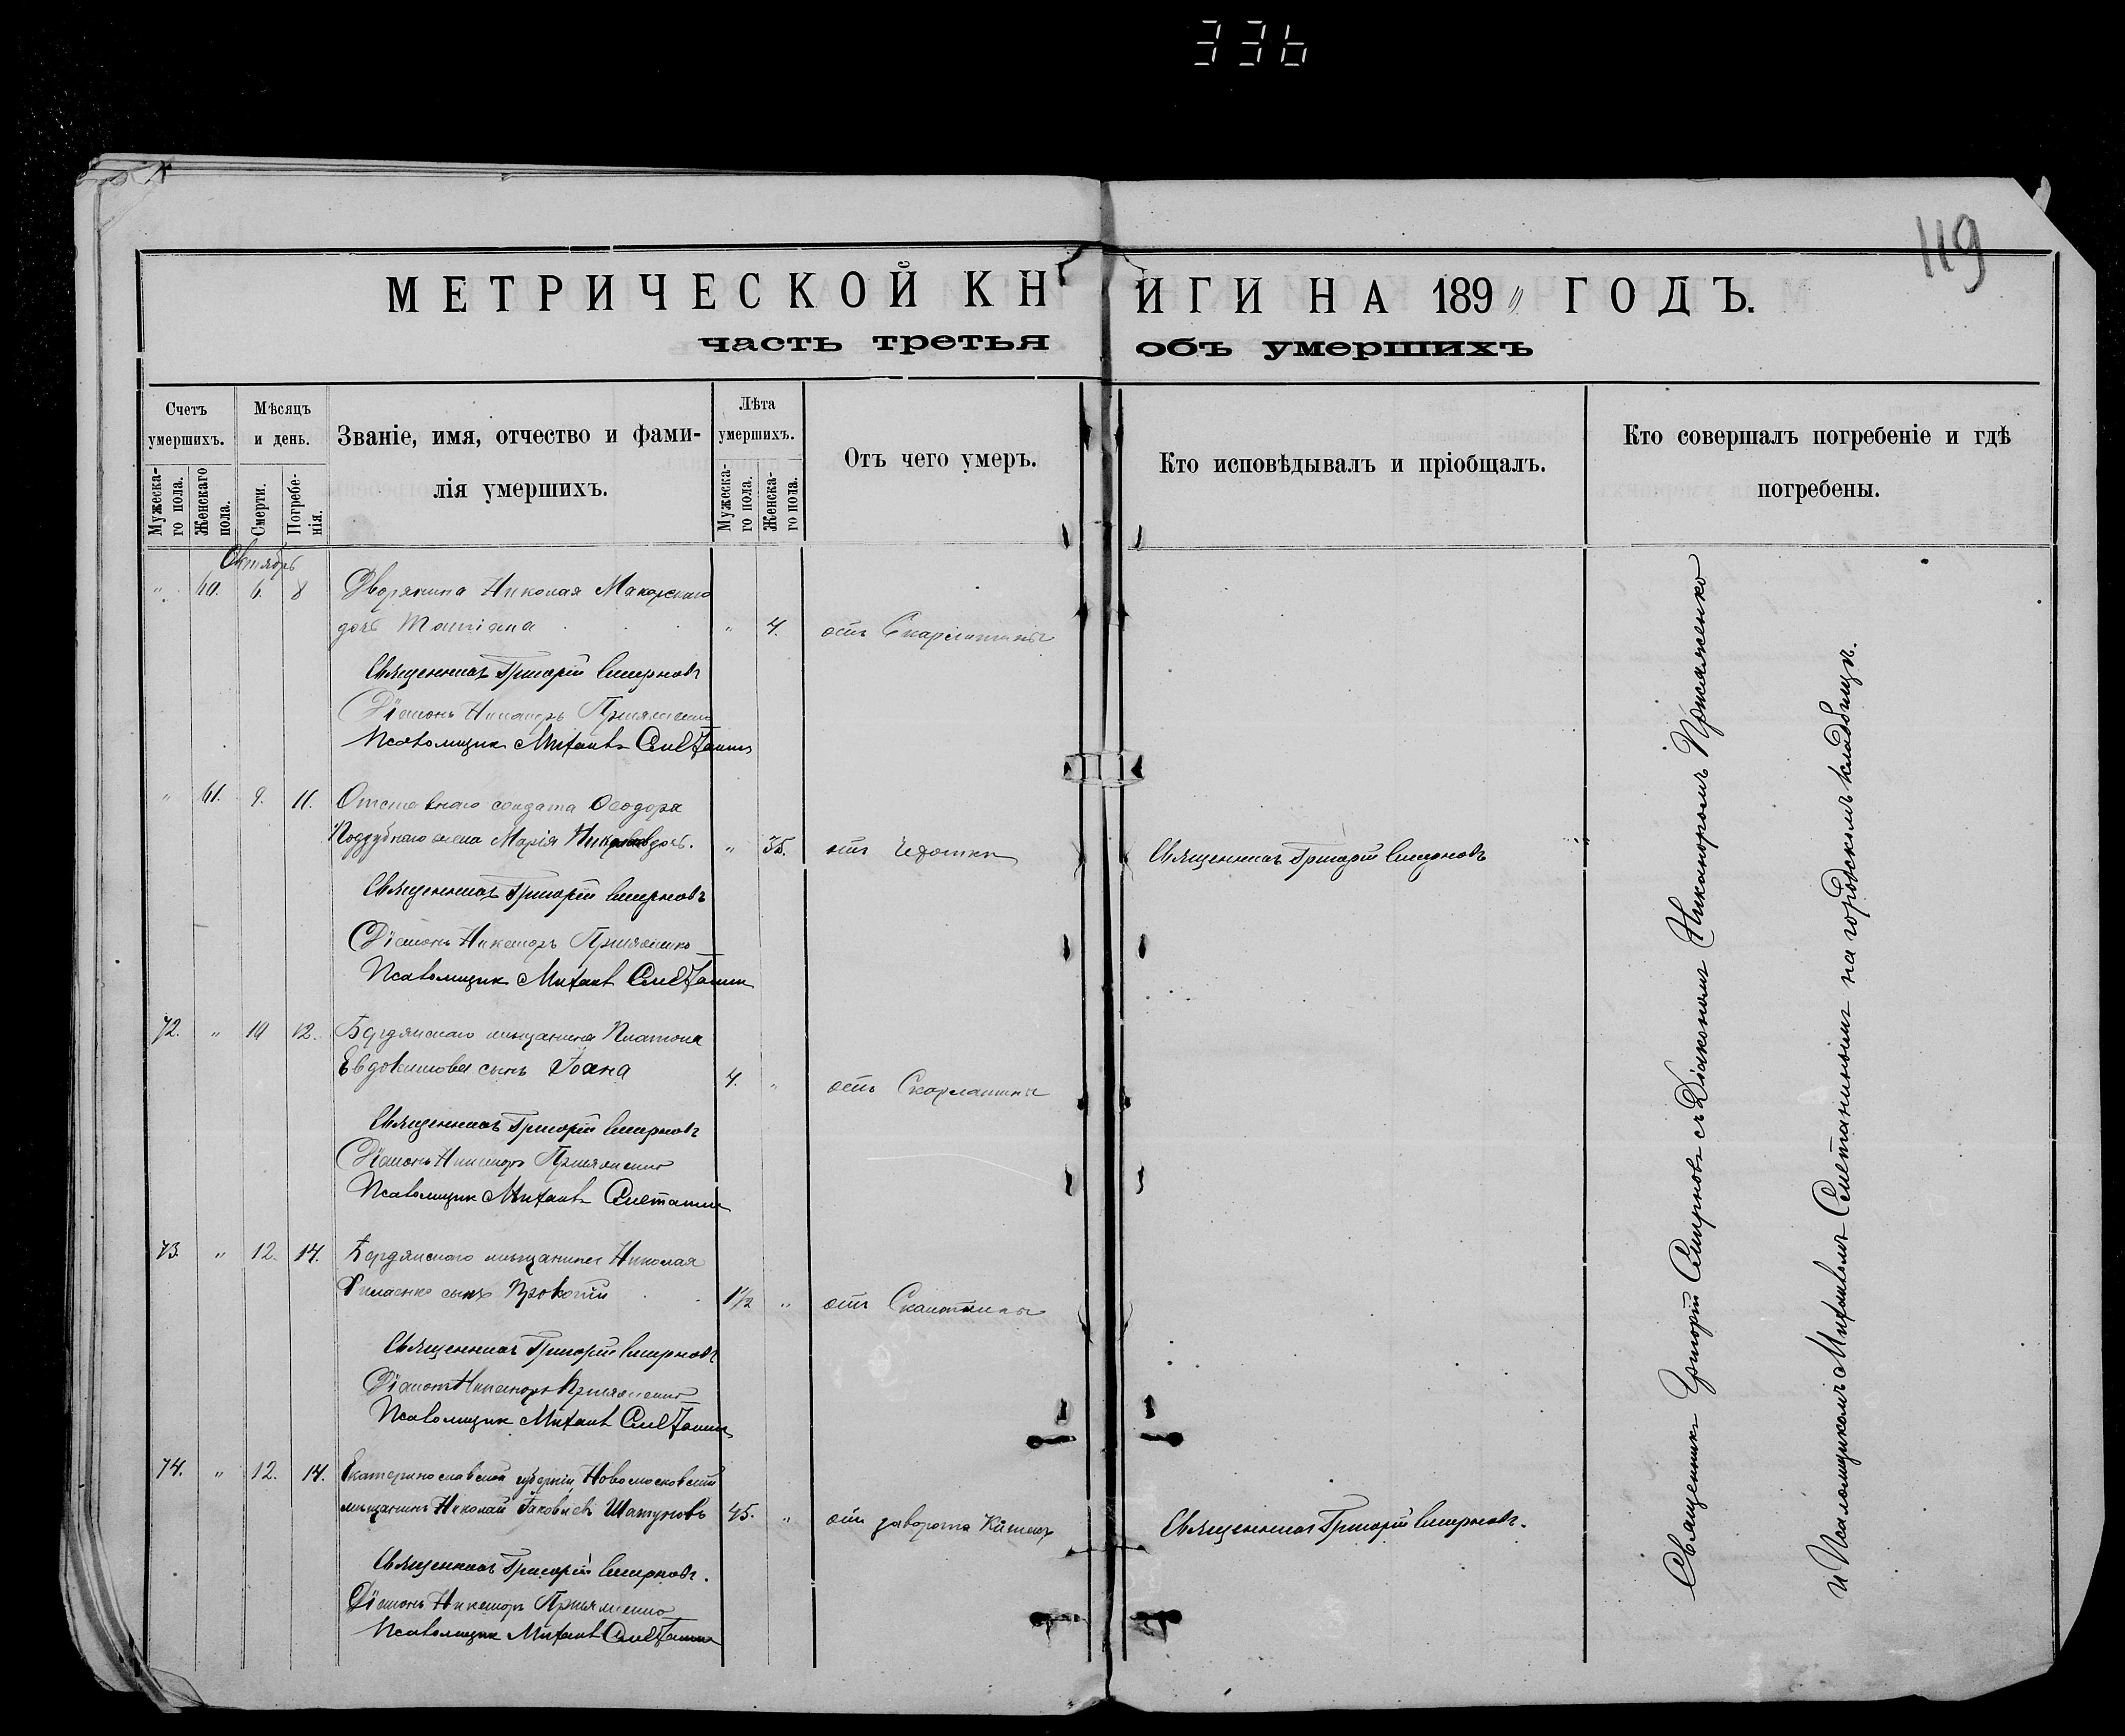 336
119
МЕТРИЧЕСКОЙ КНИГИ НА 189 ГОДЪ.
часть третья объ умершихъ
Счетъ умершихъ.
Мужескаго пола.
Женскаго пола.
Мѣсяцъ и день.
Смерти.
Погребенія.
Званіе, имя, отчество и фамилія умершихъ.
Лѣта умершихъ.
Мужескаго пола.
Женскаго пола.
Отъ чего умеръ.
Кто исповѣдывалъ и пріобщалъ.
Кто совершалъ погребеніе и гдѣ погребены.
Октябрь
" 60. 6. 8 Дворянина Николая
дочь " 4. отъ Скарлатины
Священникъ Григорій Смирновъ
Діаконъ Никаноръ Пріемженко
Псаломщик Михаилъ Сметанин
" 61. 9. 11. Отставнаго солдата Ѳеодора
Поддубнаго жена Марія " 35. отъ Чахотки Священникъ Григорій Смирновъ
Священникъ Григорій Смирновъ
Діаконъ Никаноръ Пріемженко
Псаломщик Михаилъ Сметанин
72. " 10 12. Бердянскаго мѣщанина Платона
Евдокимова сынъ Іоанъ 4. " отъ Скарлатины
Священникъ Григорій Смирновъ
Діаконъ Никаноръ Пріемженко
Псаломщик Михаилъ Сметанин
73. " 12. 14. Бердянского мѣщанина Николая
сынъ Прокопій 1½ " отъ
Священникъ Григорій Смирновъ
Діаконъ Никаноръ Пріемженко
Псаломщик Михаилъ Сметанин
74. " 12. 14. Екатеринославской губерніи, Новомосковскій
мѣщанинъ Николай Іаковлевъ Шатуновъ 45. " отъ заворота Кишекъ Священникъ Григорій Смирновъ.
Священникъ Григорій Смирновъ.
Діаконъ Никаноръ Пріемженко
Псаломщик Михаилъ Сметанин
Священникъ Григорій Смирновъ съ Діакономъ Никаноромъ Пріемженко
и Псаломщикомъ Михаиломъ Сметанинымъ на городскомъ кладбищѣ.